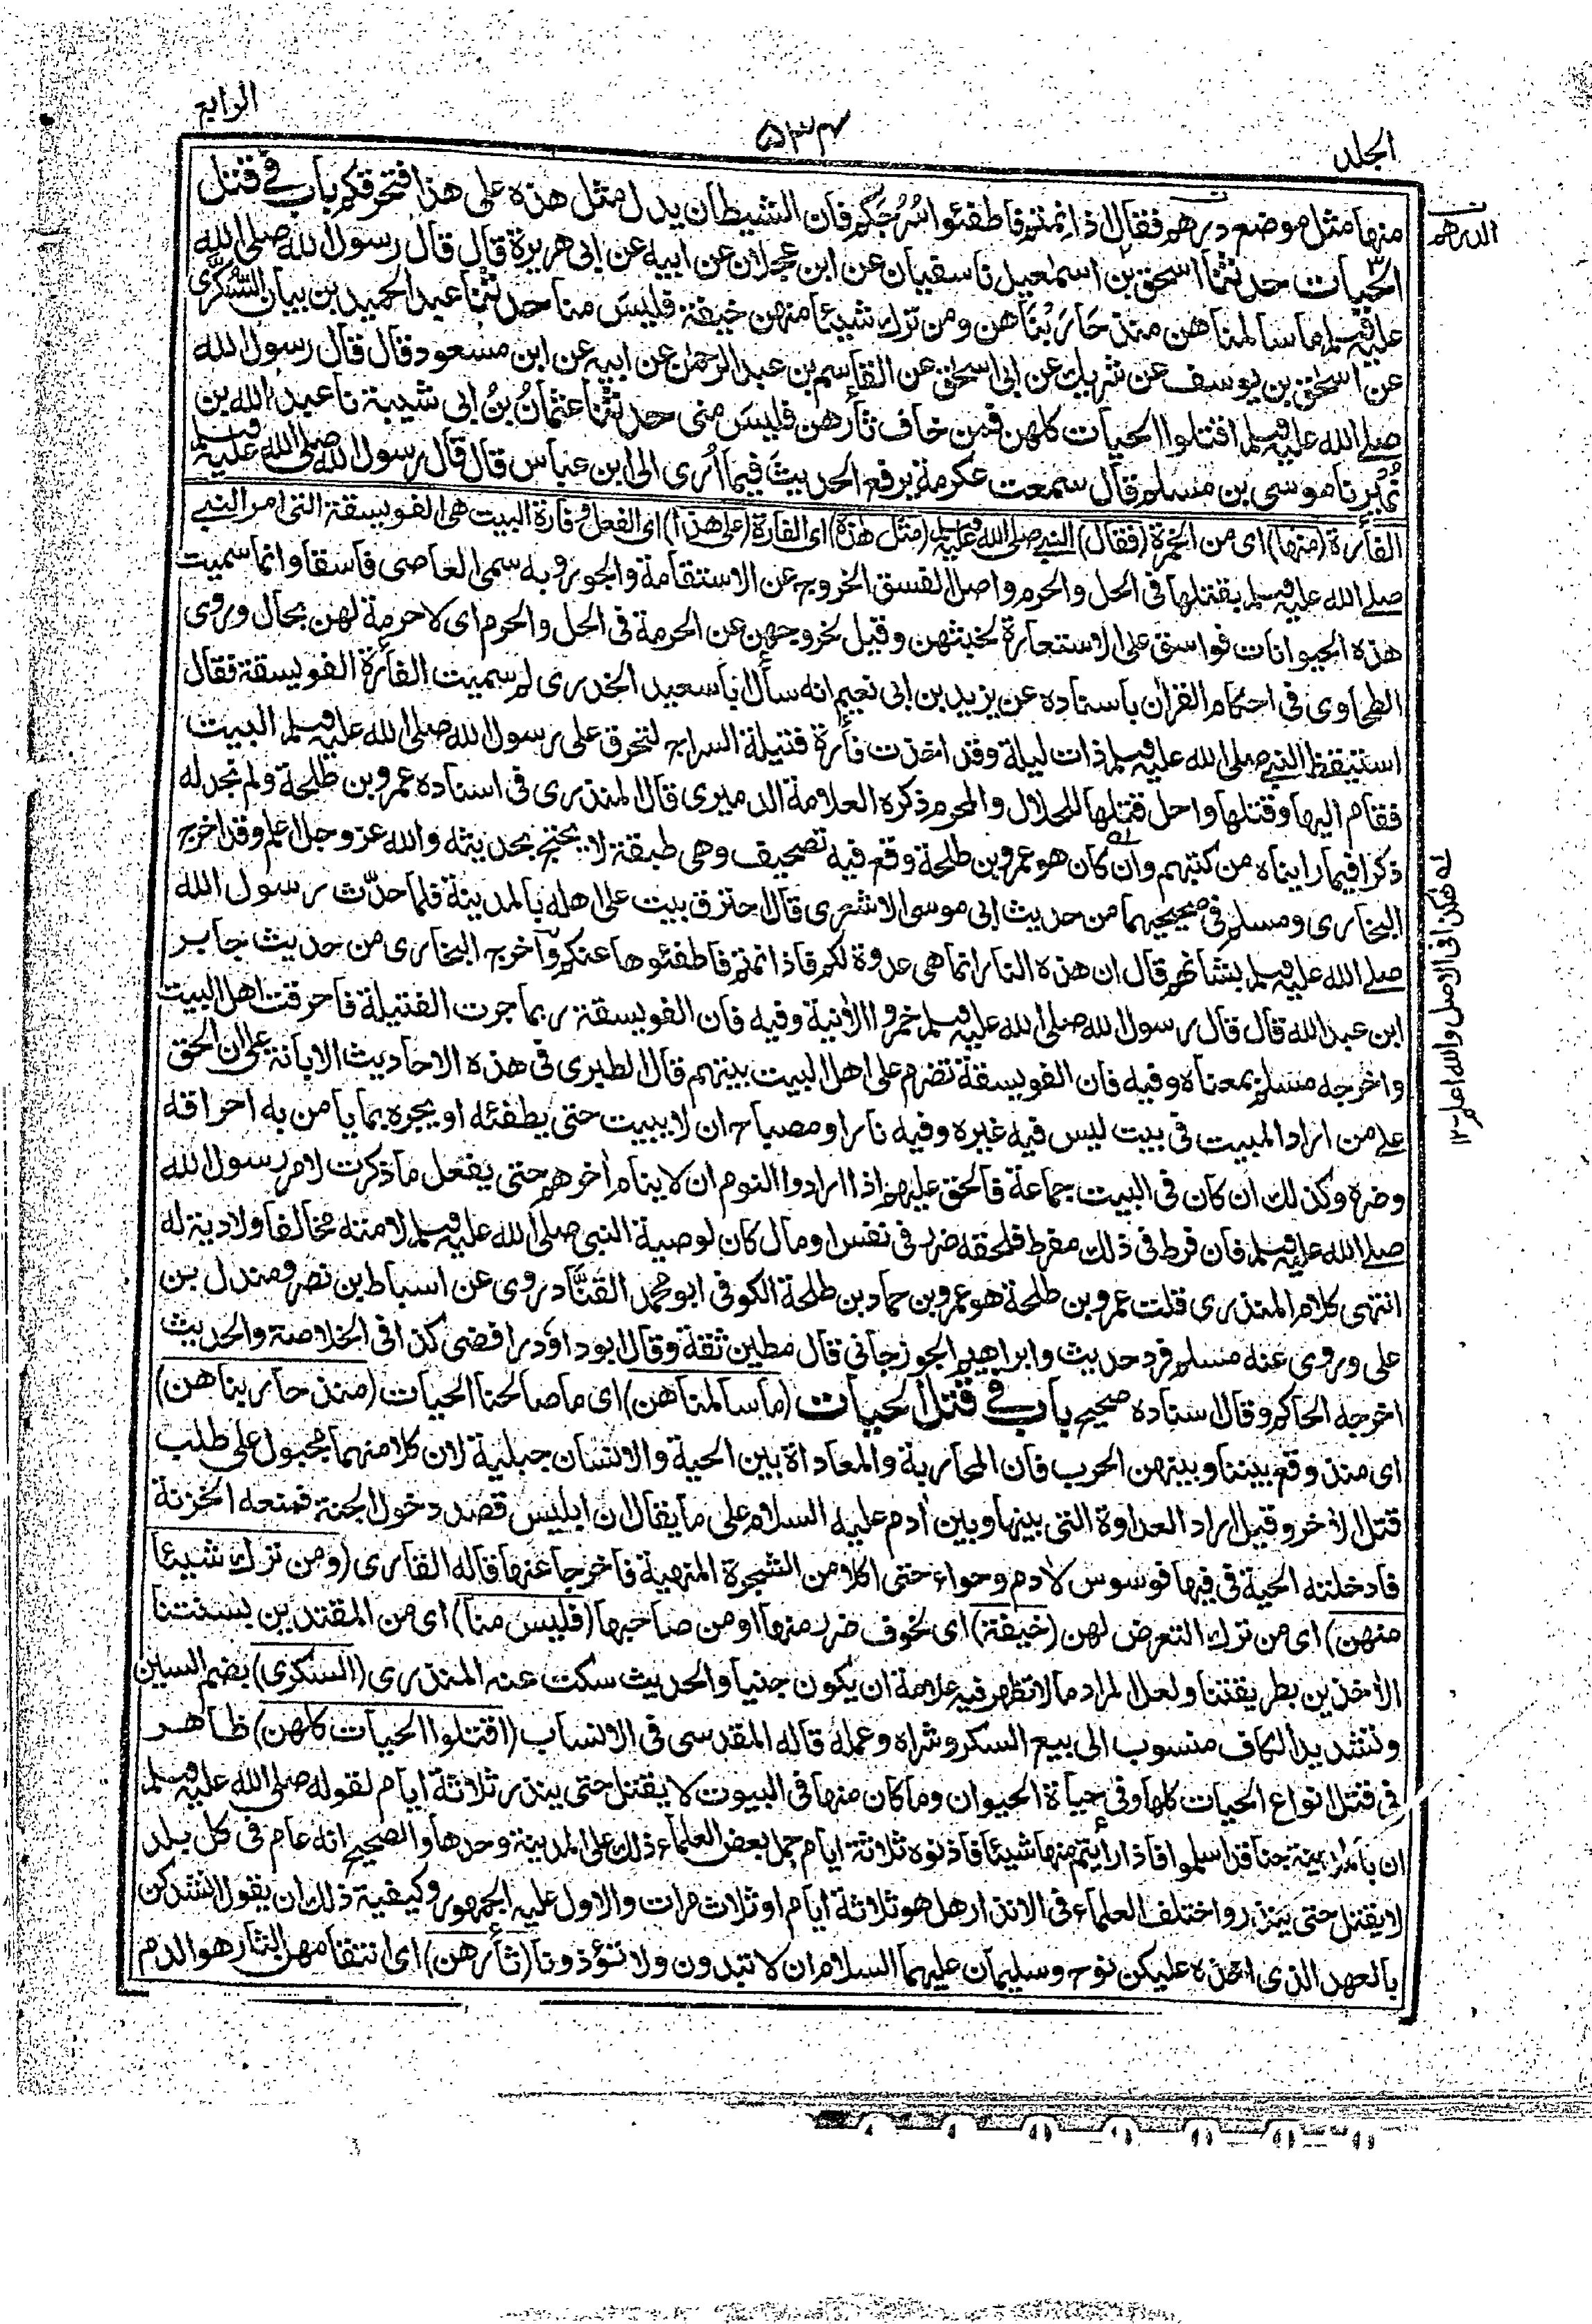 الجلد
۵۳۴
الرابع
منها مثل موضع درهم فقال اذا نمتم فاطفئوا سُرُجَكم فان الشيطان يدل مثل هذه على هذا فتحرقكم باب في قتل
الحيات حدثنا اسحق بن اسمٰعيل نا سفيان عن ابن عجلان عن ابيه عن ابى هريرة قال قال رسول الله صلى الله
عليه وسلم ما سالمناهن منذ حَارَبْنَاهن ومن ترك شيئا منهن خيفة فليسَ منا حدثنا عبد الحميد بن بيان السُّكَّرِى
عن اسحٰق بن يوسف عن شريك عن ابى اسحٰق عن القاسم بن عبد الرحمٰن عن ابيه عن ابن مسعود قال قال رسول الله
صلى الله عليه وسلم اقتلوا الحيات كلهن فمن خاف ثارهن فليسَ منى حدثنا عثمانُ بنُ ابى شيبة نا عبد الله بن
نُمَير نا موسى بن مسلم قال سمعت عكرمة يرفع الحديثَ فيما اُرى الى ابن عباس قال قال رسول الله صلى الله عليه وسلم
الفأرة (منها) اى من الخمرة (فقال) النبى صلى الله عليه وسلم (مثل هذه) اى الفارة (على هذا) اى الفعل وفارة البيت هى الفويسقة التى امر النبى
صلى الله عليه وسلم بقتلها فى الحل والحرم واصل الفسق الخروج عن الاستقامة والجور وبه سمى العاصى فاسقا وانما سميت
هذه الحيوانات فواسق على الاستعارة لخبثهن وقيل لخروجهن عن الحرمة فى الحل والحرم اى لا حرمة لهن بحال وروى
الطحاوى فى احكام القرأن باسناده عن يزيد بن ابى نعيم انه سأل ابا سعيد الخدرى لم سميت الفأرة الفويسقة فقال
استيقظ النبى صلى الله عليه وسلم ذات ليلة وقد اخذت فأرة فتيلة السراج لتحرق على رسول الله صلى الله عليه وسلم البيت
فقام اليها وقتلها واحل قتلها للحلال والمحرم ذكره العلامة الدميرى قال المنذرى فى اسناده عمرو بن طلحة ولم نجد له
ذكرا فيما رايناه من كتبهم وان كان هو عمرو بن طلحة وقع فيه تصحيف وهى طبقة لا يحتج بحديثه والله عز وجل اعلم وقد اخرج
البخارى ومسلم فى صحيحيهما من حديث ابى موسى الاشعرى قال احترق بيت على اهله بالمدينة فلما حدّث رسول الله
صلى الله عليه وسلم بشانهم قال ان هذه النار انما هى عدوة لكم فاذا نمتم فاطفئوها عنكم واخرجه البخارى من حديث جابر
ابن عبد الله قال قال رسول الله صلى الله عليه وسلم خمروا الأنية وفيه فان الفويسقة ربما جرت الفتيلة فاحرقت اهل البيت
واخرجه مسلم بمعناه وفيه فان الفويسقة تضرم على اهل البيت بيتهم قال الطبرى فى هذه الاحاديث الابانة على ان الحق
على من اراد المبيت فى بيت ليس فيه غيره وفيه نار او مصباح ان لا يبيت حتى يطفئه او يجره بما يامن به احراقه
وضره وكذلك ان كان فى البيت جماعة فالحق عليهم اذا ارادوا النوم ان لا ينام أخرهم حتى يفعل ما ذكرت لامر رسول الله
صلى الله عليه وسلم فان فرط فى ذلك مفرط فلحقه ضرر فى نفس او مال كان لوصية النبى صلى الله عليه وسلم لامته مخالفا ولا دية له
انتهى كلام المنذرى قلت عمرو بن طلحة هو عمرو بن حماد بن طلحة الكوفى ابو محمد القَنَّاد روى عن اسباط بن نصر ومندل بن
على وروى عنه مسلم فرد حديث وابراهيم الجوزجانى قال مطين ثقة وقال ابو داؤد رافضى كذا فى الخلاصة والحديث
اخرجه الحاكم وقال اسناده صحيح باب في قتل الحيات (ما سالمناهن) اى ما صالحنا الحيات (منذ حاربناهن)
اى منذ وقع بيننا وبينهن الحرب فان المحاربة والمعاداة بين الحية والانسان جبلية لان كلا منهما مجبول على طلب
قتل الأخر وقيل اراد العداوة التى بينها وبين أدم عليه السلام على ما يقال ان ابليس قصد دخول الجنة فمنعه الخزنة
فادخلته الحية فى فيها فوسوس لأدم وحواء حتى اكلا من الشجرة المنهية فاخرجا عنها قاله القارى (ومن ترك شيئا
منهن) اى من ترك التعرض لهن (خيفة) اى لخوف ضرر منها او من صاحبها (فليس منا) اى من المقتدين بسنتنا
الأخذين بطريقتنا ولعل المراد ما لا تظهر فيه علامة ان يكون جنيا والحديث سكت عنه المنذرى (السكرى) بضم السين
وتشديد الكاف منسوب الى بيع السكر وشراه وعمله قاله المقدسى فى الانساب (اقتلوا الحيات كلهن) ظاهر
فى قتل انواع الحيات كلها وفى حياة الحيوان وما كان منها فى البيوت لا يقتل حتى ينذر ثلاثة ايام لقوله صلى الله عليه وسلم
ان بالمدينة جنا قد اسلموا فاذا رايتم منها شيئا فأذنوه ثلاثة ايام حمل بعض العلماء ذلك على المدينة وحدها والصحيح انه عام فى كل بلد
لا يقتل حتى ينذر واختلف العلماء فى الانذار هل هو ثلاثة ايام او ثلاث مرات والاول عليه الجمهور وكيفية ذلك ان يقول انشدكن
بالعهد الذى اخذه عليكن نوح وسليمان عليهما السلام ان لا تبدون ولا تؤذونا (ثأرهن) اى انتقامهن الثار هو الدم
الدرهم
له هكذا فى الاصل والله اعلم ١٢